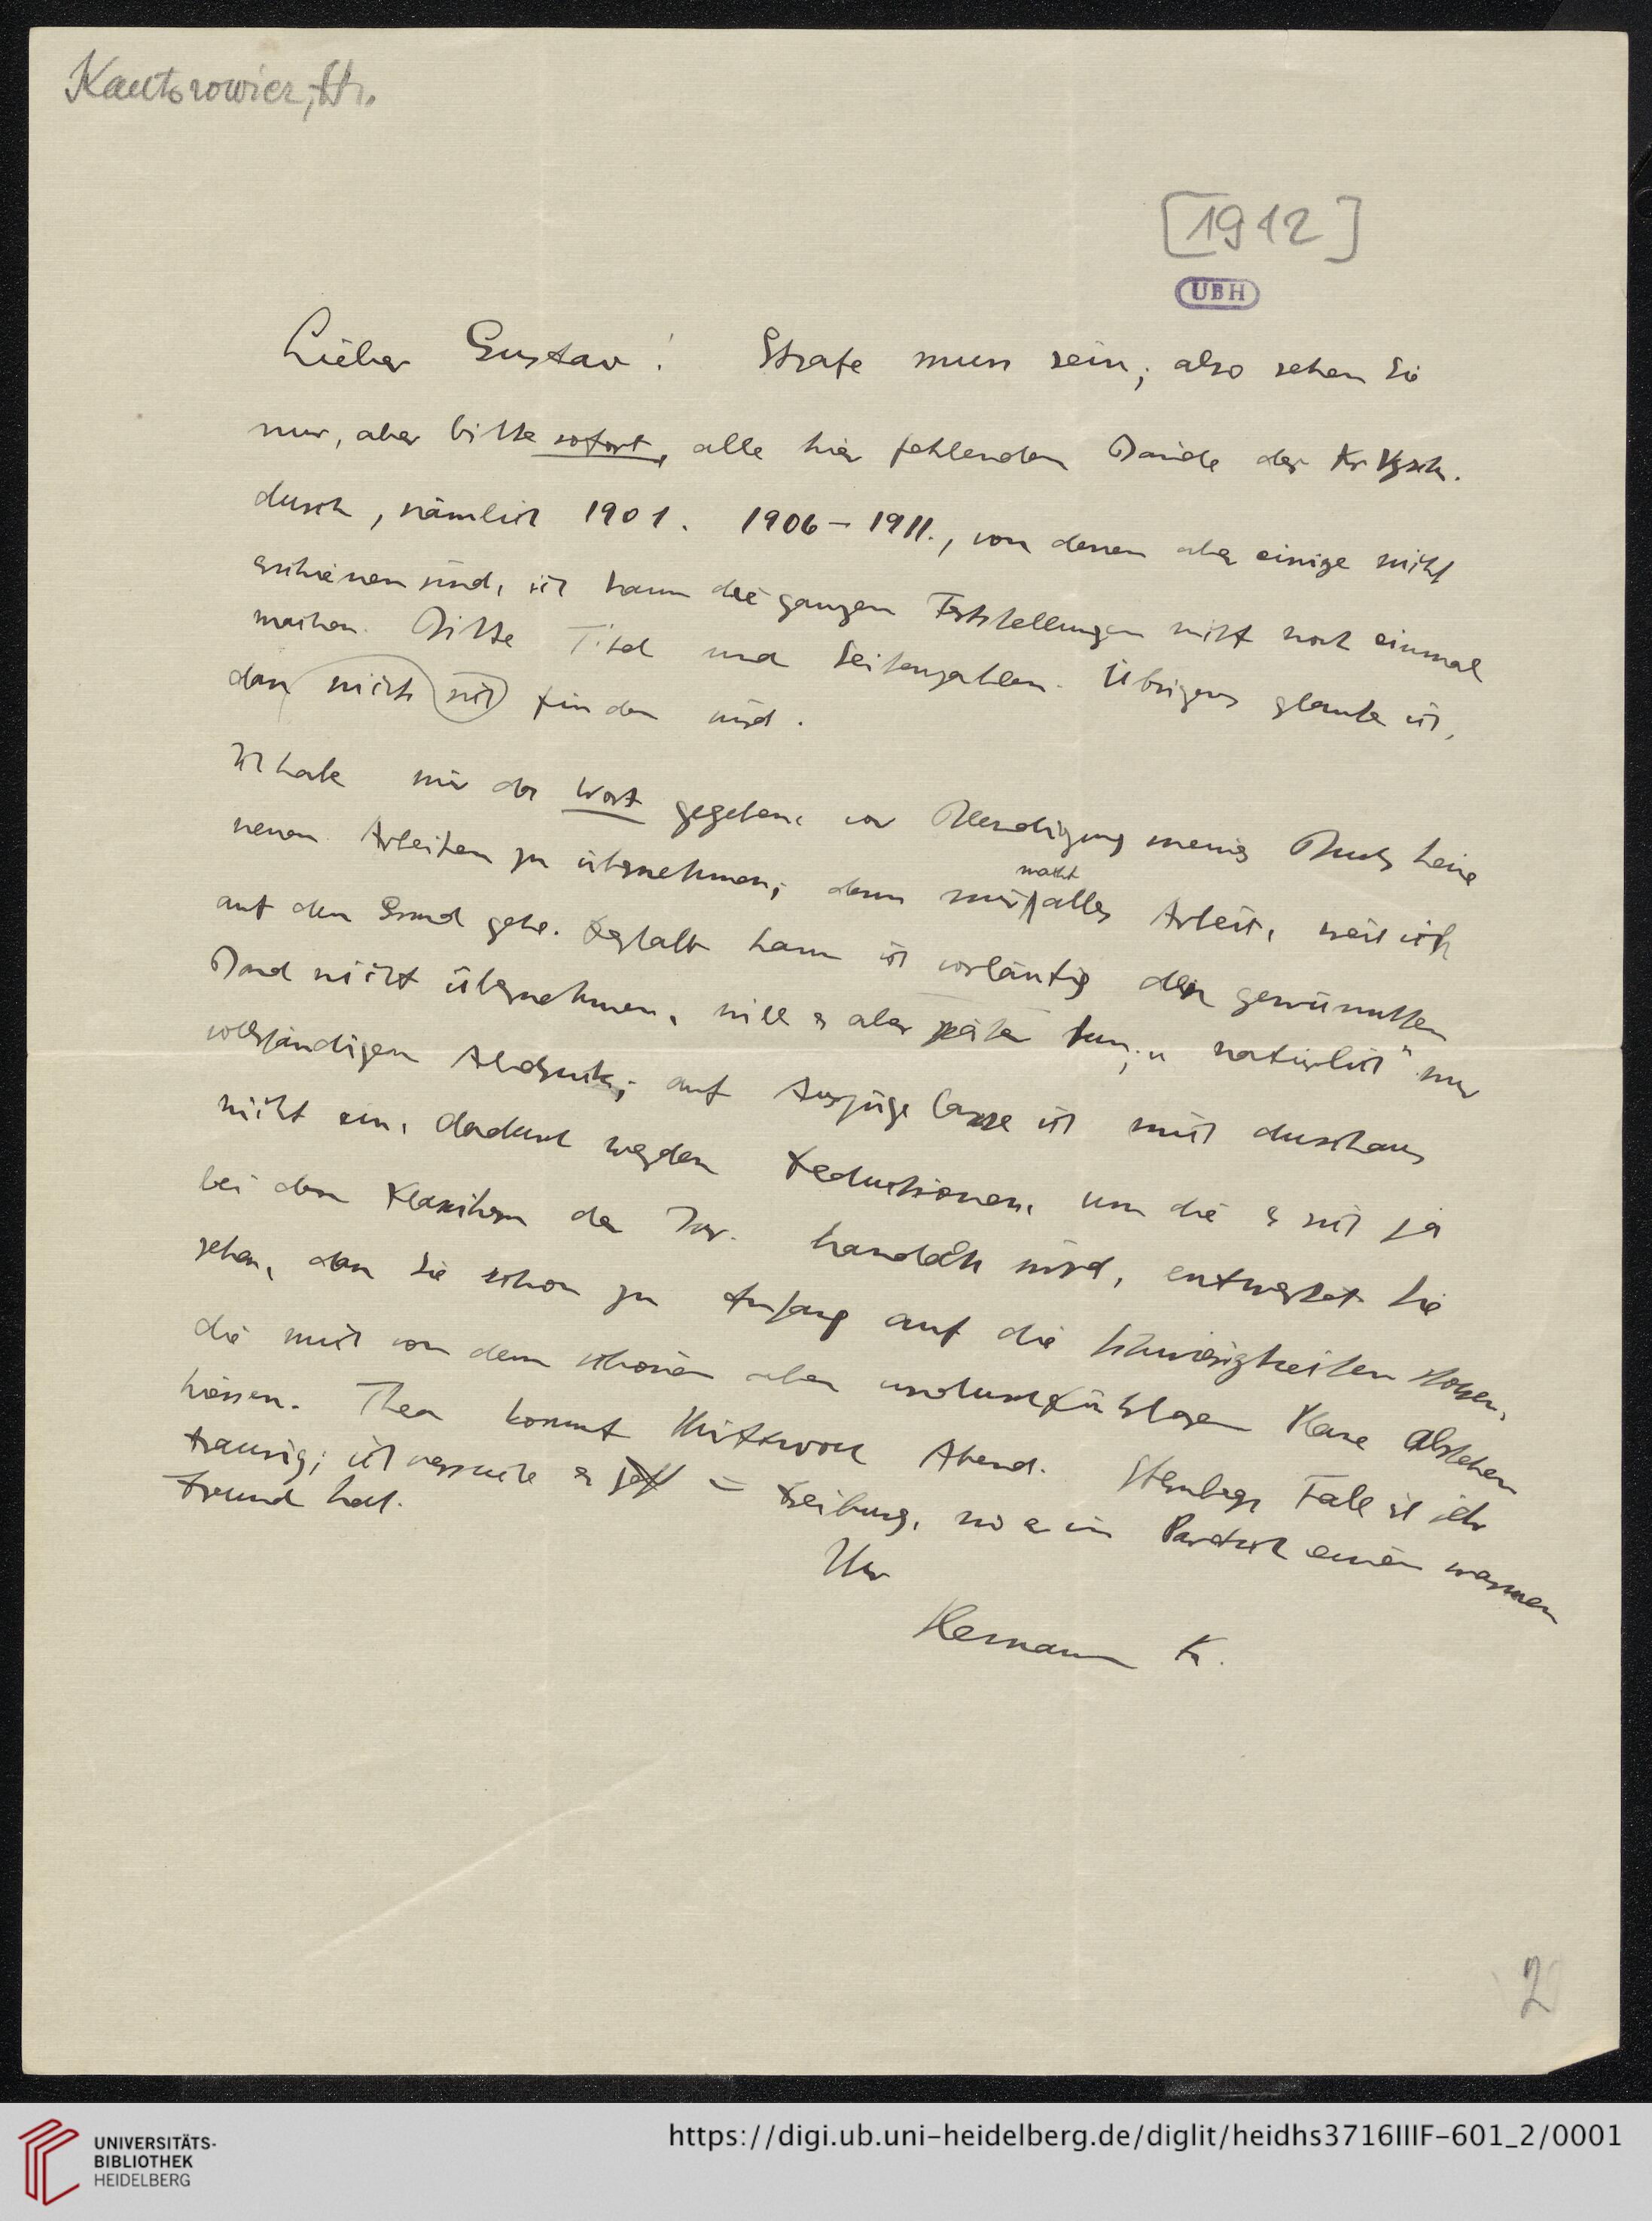 Kantorowicz, H.
[1912]
UBH
Lieber Gustav! Strafe muss sein; also sehen Sie
nur, aber bitte sofort, alle hier fehlenden Bände der Kr Vjsch.
durch, nämlich 1901. 1906–1911., von denen aber einige nicht
erschienen sind, ich kann die ganzen Feststellungen nicht noch einmal
machen. Bitte Titel und Seitenzahlen. Übrigens glaube ich,
dass nichts sich finden wird.
Ich habe mir das Wort gegeben, vor Beendigung meines Buchs keine
neuen Arbeiten zu übernehmen; denn mir macht alles Arbeit, weil ich
auf den Grund gehe. Deshalb kann ich vorläufig den gewünschten
Band nicht übernehmen, will es aber später tun; „natürlich" nur
vollständigen Abdruck; auf Auszüge lasse ich mich durchaus
nicht ein, dadurch werden Deductionen, um die es sich ja
bei den Klassikern der Jur. handeln wird, entwertet. Sie
sehen, dass Sie schon zu Anfang auf die Schwierigkeiten stossen,
die mich von dem schönen aber undurchführbaren Plane abstehen
hiessen. Thea kommt Mittwoch Abend. Sternbergs Fall ist sehr
traurig; ich versuche es jetzt in Freiburg, wo er in einen warmen
Freund hat.
Ihr
Hermann K.
2
UNIVERSITÄTS-
BIBLIOTHEK
HEIDELBERG
https://digi.ub.uni-heidelberg.de/diglit/heidhs3716IIIF-601_2/0001